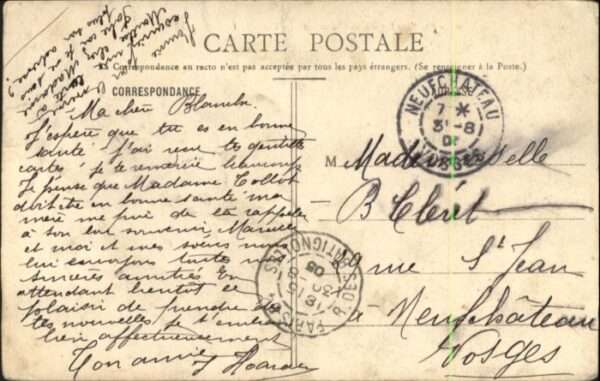 CARTE POSTALE
La Correspondance au recto n'est pas acceptée par tous les pays étrangers. (Se renseigner à la Poste.)
CORRESPONDANCE
Ma chère Blanche
J'espère que tu es en bonne
santé J'ai reçu tes gentilles
cartes je te remercie beaucoup
Je pense que Madame Collot
doit être en bonne santé ma
mère me prie de la rappeler
à son bon souvenir
et moi et mes sœurs nous
lui envoyons toutes nos
sincères amitiés En
attendant bientôt le
plaisir de prendre de
tes nouvelles je t'embrasse
bien affectueusement
Ton amie
NEUFCHATEAU
7 *
31-8
VOSGES
PARIS
BATIGNOLLES
30
8
05
M Mademoiselle
B Clerét
rue St Jean
à Neufchâteau
Vosges